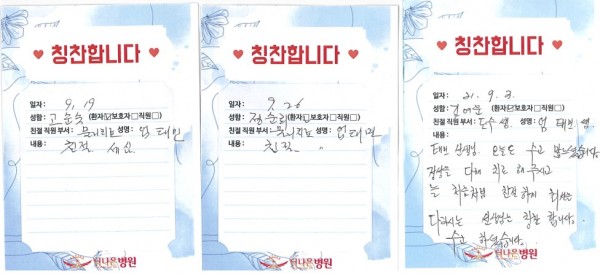 칭찬합니다
일자: 9. 19
성함: 고순숙 (환자☑보호자☐직원☐)
친절 직원 부서: 물리치료 성명: 엄태민
내용: 친절
칭찬합니다
일자: 9. 26
성함: (환자☑보호자☐직원☐)
친절 직원 부서: 물리치료 성명: 엄태민
내용: 친절
더나은병원
칭찬합니다
일자: 21. 9. 3.
성함: (환자☑보호자☐직원☐)
친절 직원 부서: 도수 성명: 엄태민
내용:
태민 선생님. 오늘도 수고 많으셨습니다.
정성을 다해 치료 해 주시고
늘 처음처럼 친절 하게
선생님을 칭찬 합니다.
수고 하셨습니다.
더나은병원